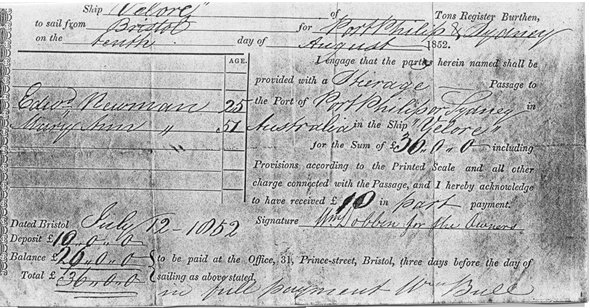 Ship "Velore" of Tons Register Burthen,
to sail from Bristol for Port Philip & Sydney
on the tenth day of August 1852.
AGE.
Edwd Newman 25
Mary Ann " 51
I engage that the parties herein named shall be
provided with a Steerage Passage to
the Port of Port Philip or Sydney in
Australia in the Ship "Velore"
for the Sum of £30,,0,,0 including
Provisions according to the Printed Scale and all other
charge connected with the Passage, and I hereby acknowledge
to have received £10 in part payment.
Signature Wm Dobbin for the Owners
Dated Bristol July 12 - 1852
Deposit £10,,0,,0
Balance £20,,0,,0 to be paid at the Office, 31, Prince-street, Bristol, three days before the day of
Total £30,,0,,0 sailing as above stated,
in full payment Wm